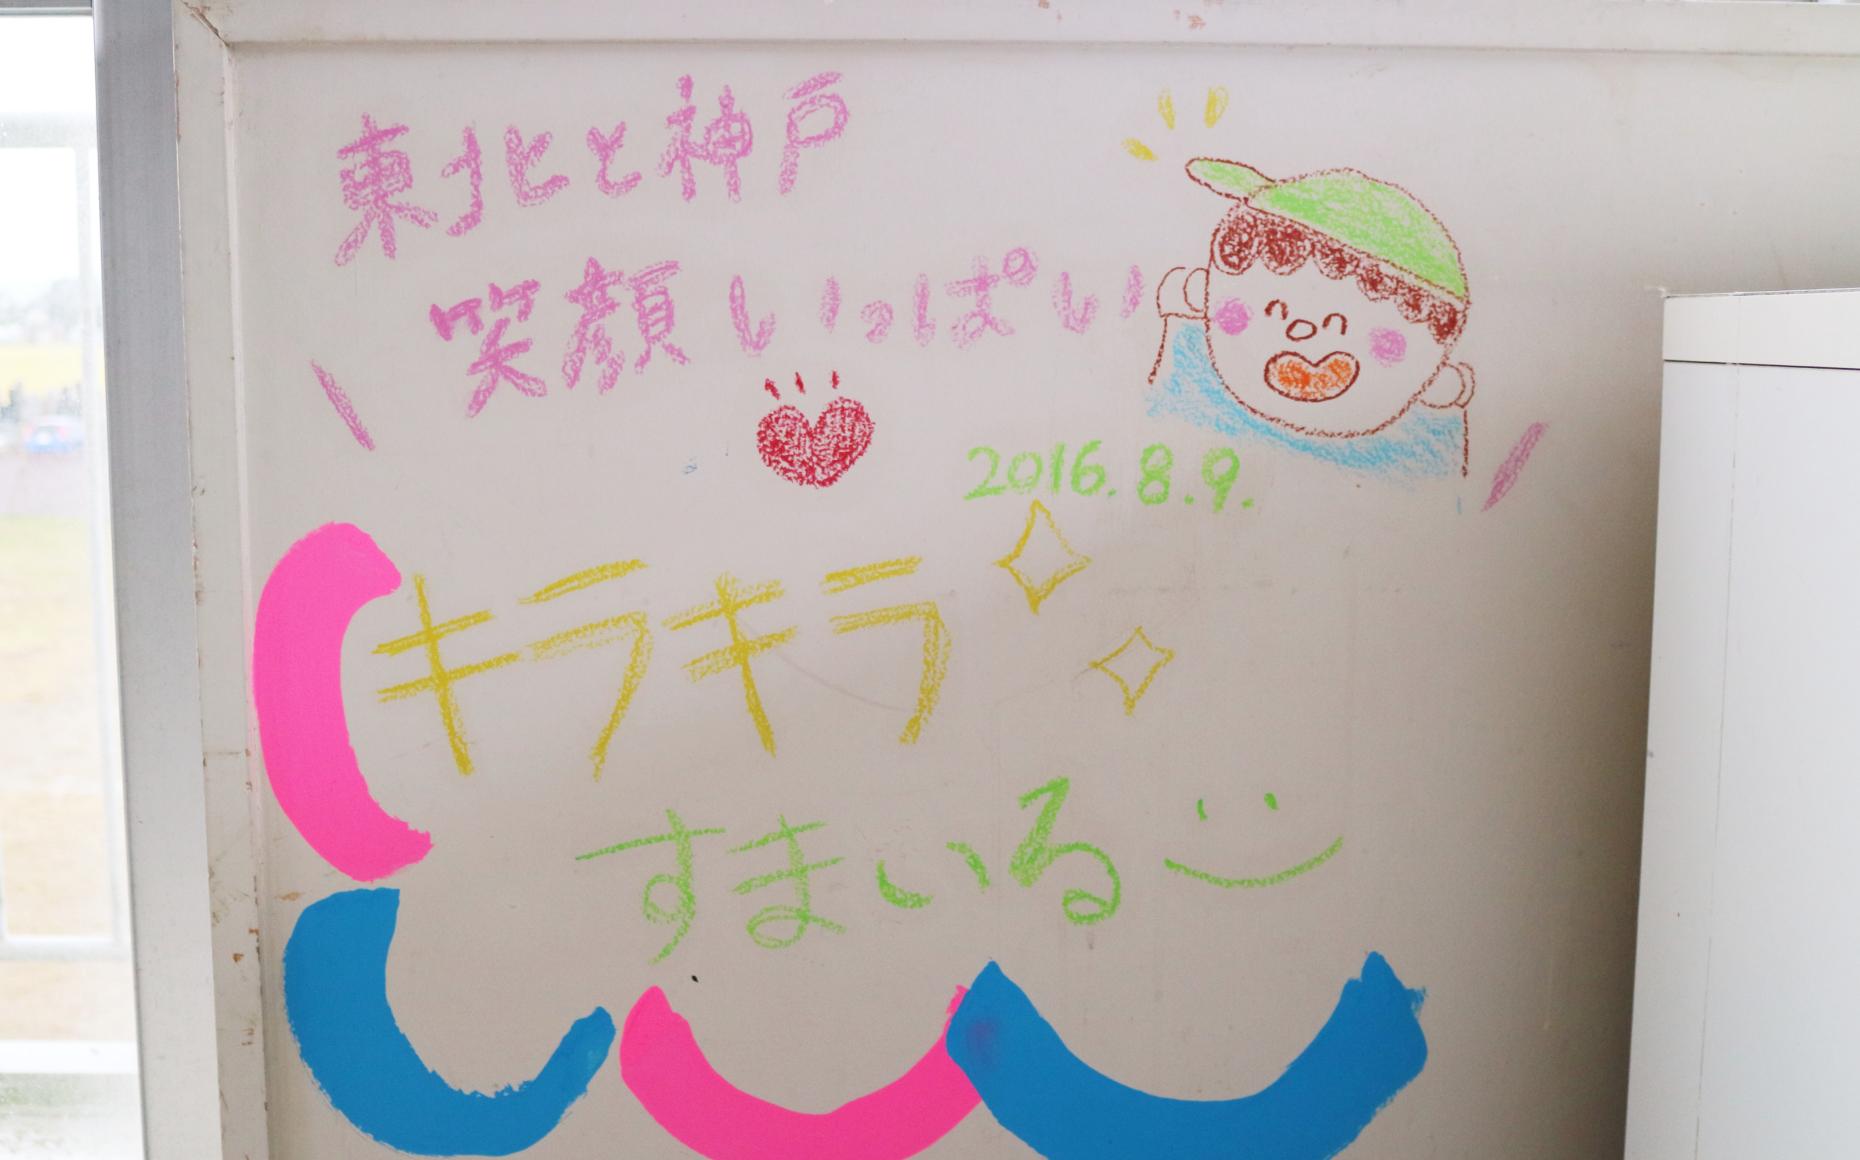 東北と神戸
笑顔いっぱい
2016.8.9.
キラキラ
すまいる